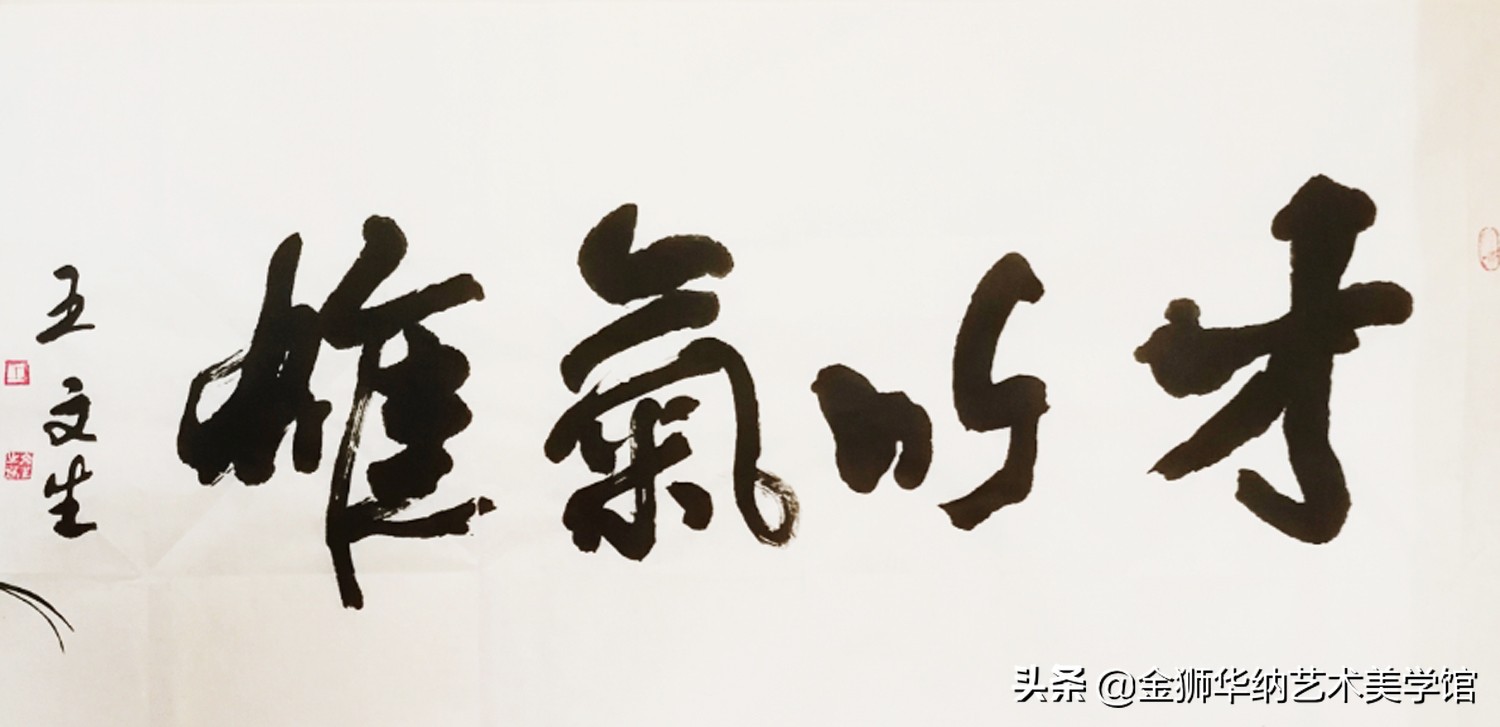 才以氣雄
王文生
头条 @金狮华纳艺术美学馆